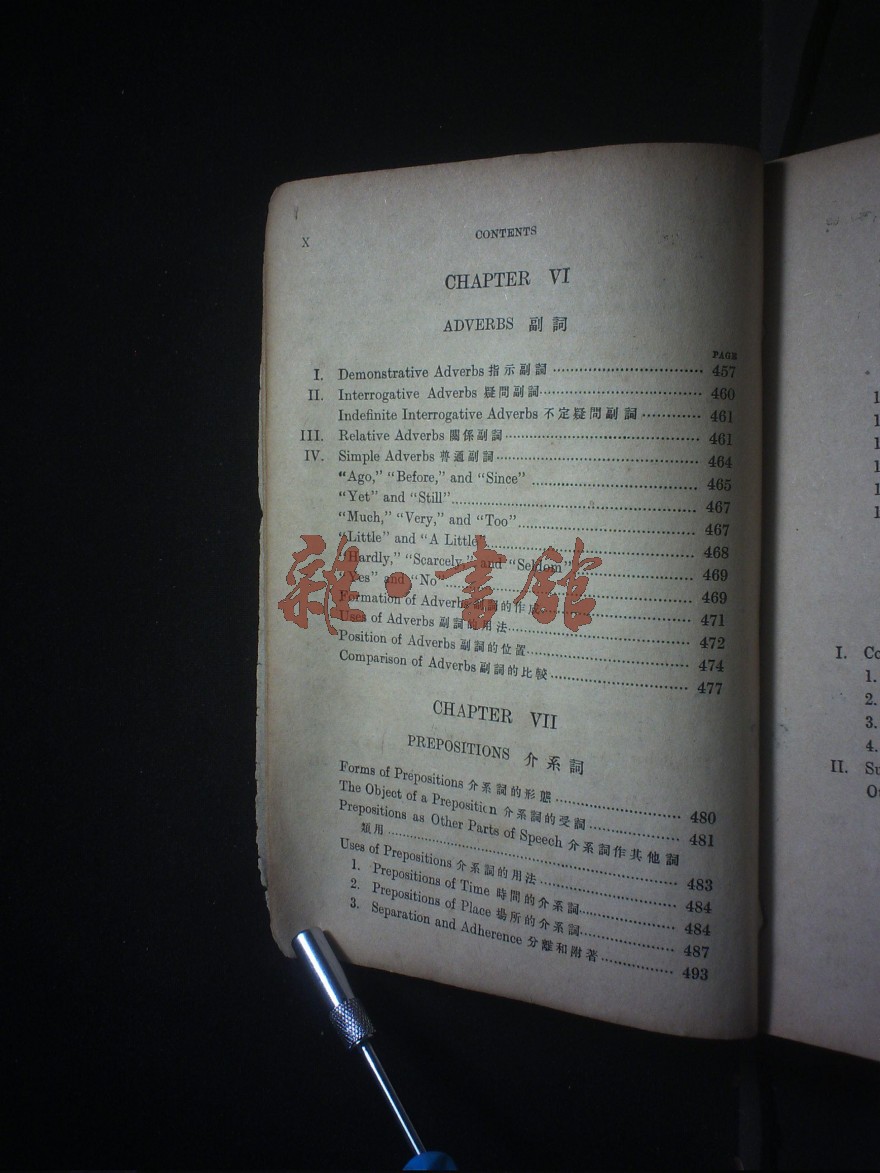 X
CONTENTS
CHAPTER VI
ADVERBS 副詞
PAGE
I. Demonstrative Adverbs 指示副詞 457
II. Interrogative Adverbs 疑問副詞 460
Indefinite Interrogative Adverbs 不定疑問副詞 461
III. Relative Adverbs 關係副詞 461
IV. Simple Adverbs 普通副詞 464
"Ago," "Before," and "Since" 465
"Yet" and "Still" 467
"Much," "Very," and "Too" 467
"Little" and "A Little" 468
"Hardly," "Scarcely," and "Seldom" 469
"Yes" and "No" 469
Formation of Adverbs 副詞的作成 471
Uses of Adverbs 副詞的用法 472
Position of Adverbs 副詞的位置 474
Comparison of Adverbs 副詞的比較 477
CHAPTER VII
PREPOSITIONS 介系詞
Forms of Prepositions 介系詞的形態 480
The Object of a Preposition 介系詞的受詞 481
Prepositions as Other Parts of Speech 介系詞作其他詞
類用 483
Uses of Prepositions 介系詞的用法 484
1. Prepositions of Time 時間的介系詞 484
2. Prepositions of Place 場所的介系詞 487
3. Separation and Adherence 分離和附著 493
雜·書館
I. Co
1.
2.
3.
4.
II. Su